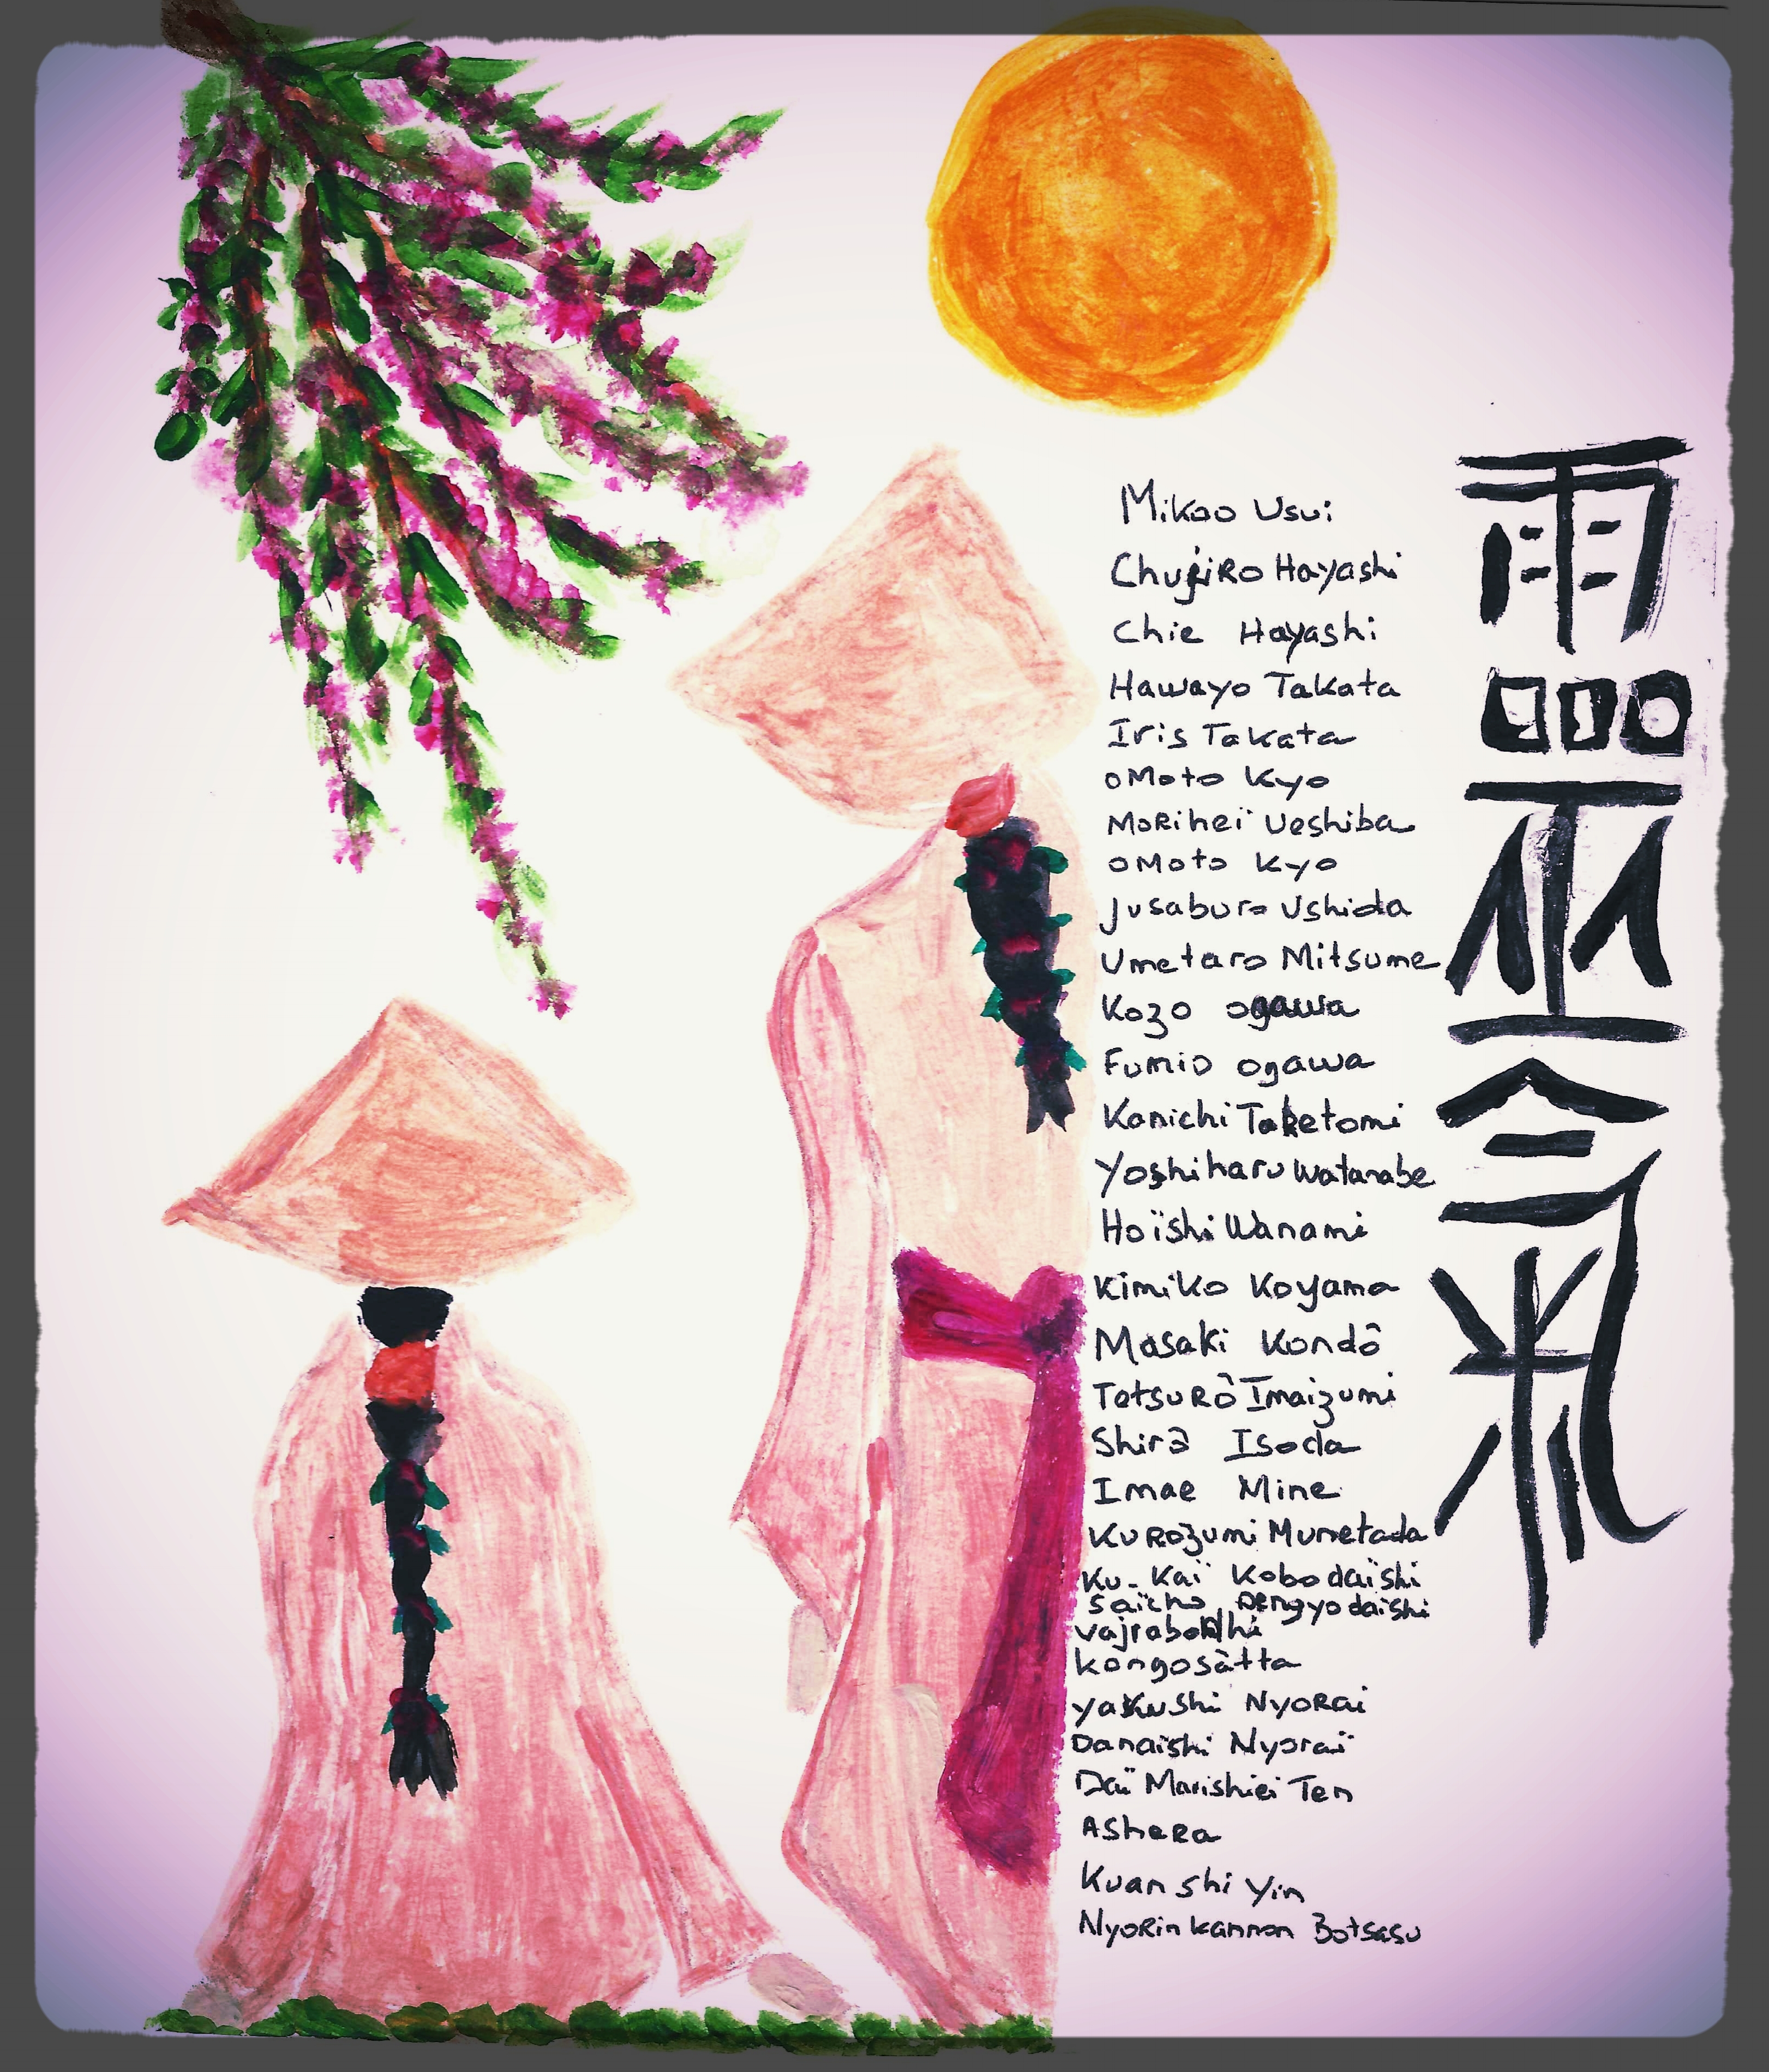 Mikao Usui
Chujiro Hayashi
Chie Hayashi
Hawayo Takata
Iris Takata
oMoto Kyo
MoRiheï Ueshiba
oMoto Kyo
Jusaburo Ushida
Umetaro Mitsume
Kozo ogawa
Fumio ogawa
Kanichi Taketomi
Yoshiharu Watanabe
Hoïshi Wanami
Kimiko Koyama
Masaki Kondô
TetsuRô Imaizumi
Shirô Isoda
Imae Mine
KuRozumi Munetada
Ku-Kaï Kobo daïshi
Saïcho Dengyo daïshi
Vajrabodhi
Kongosàtta
Yakushi NyoRai
Danaishi Nyoraï
Daï Marishiei Ten
AsheRa
Kuan shi Yin
NyoRin Kannon Botsasu
靈氣